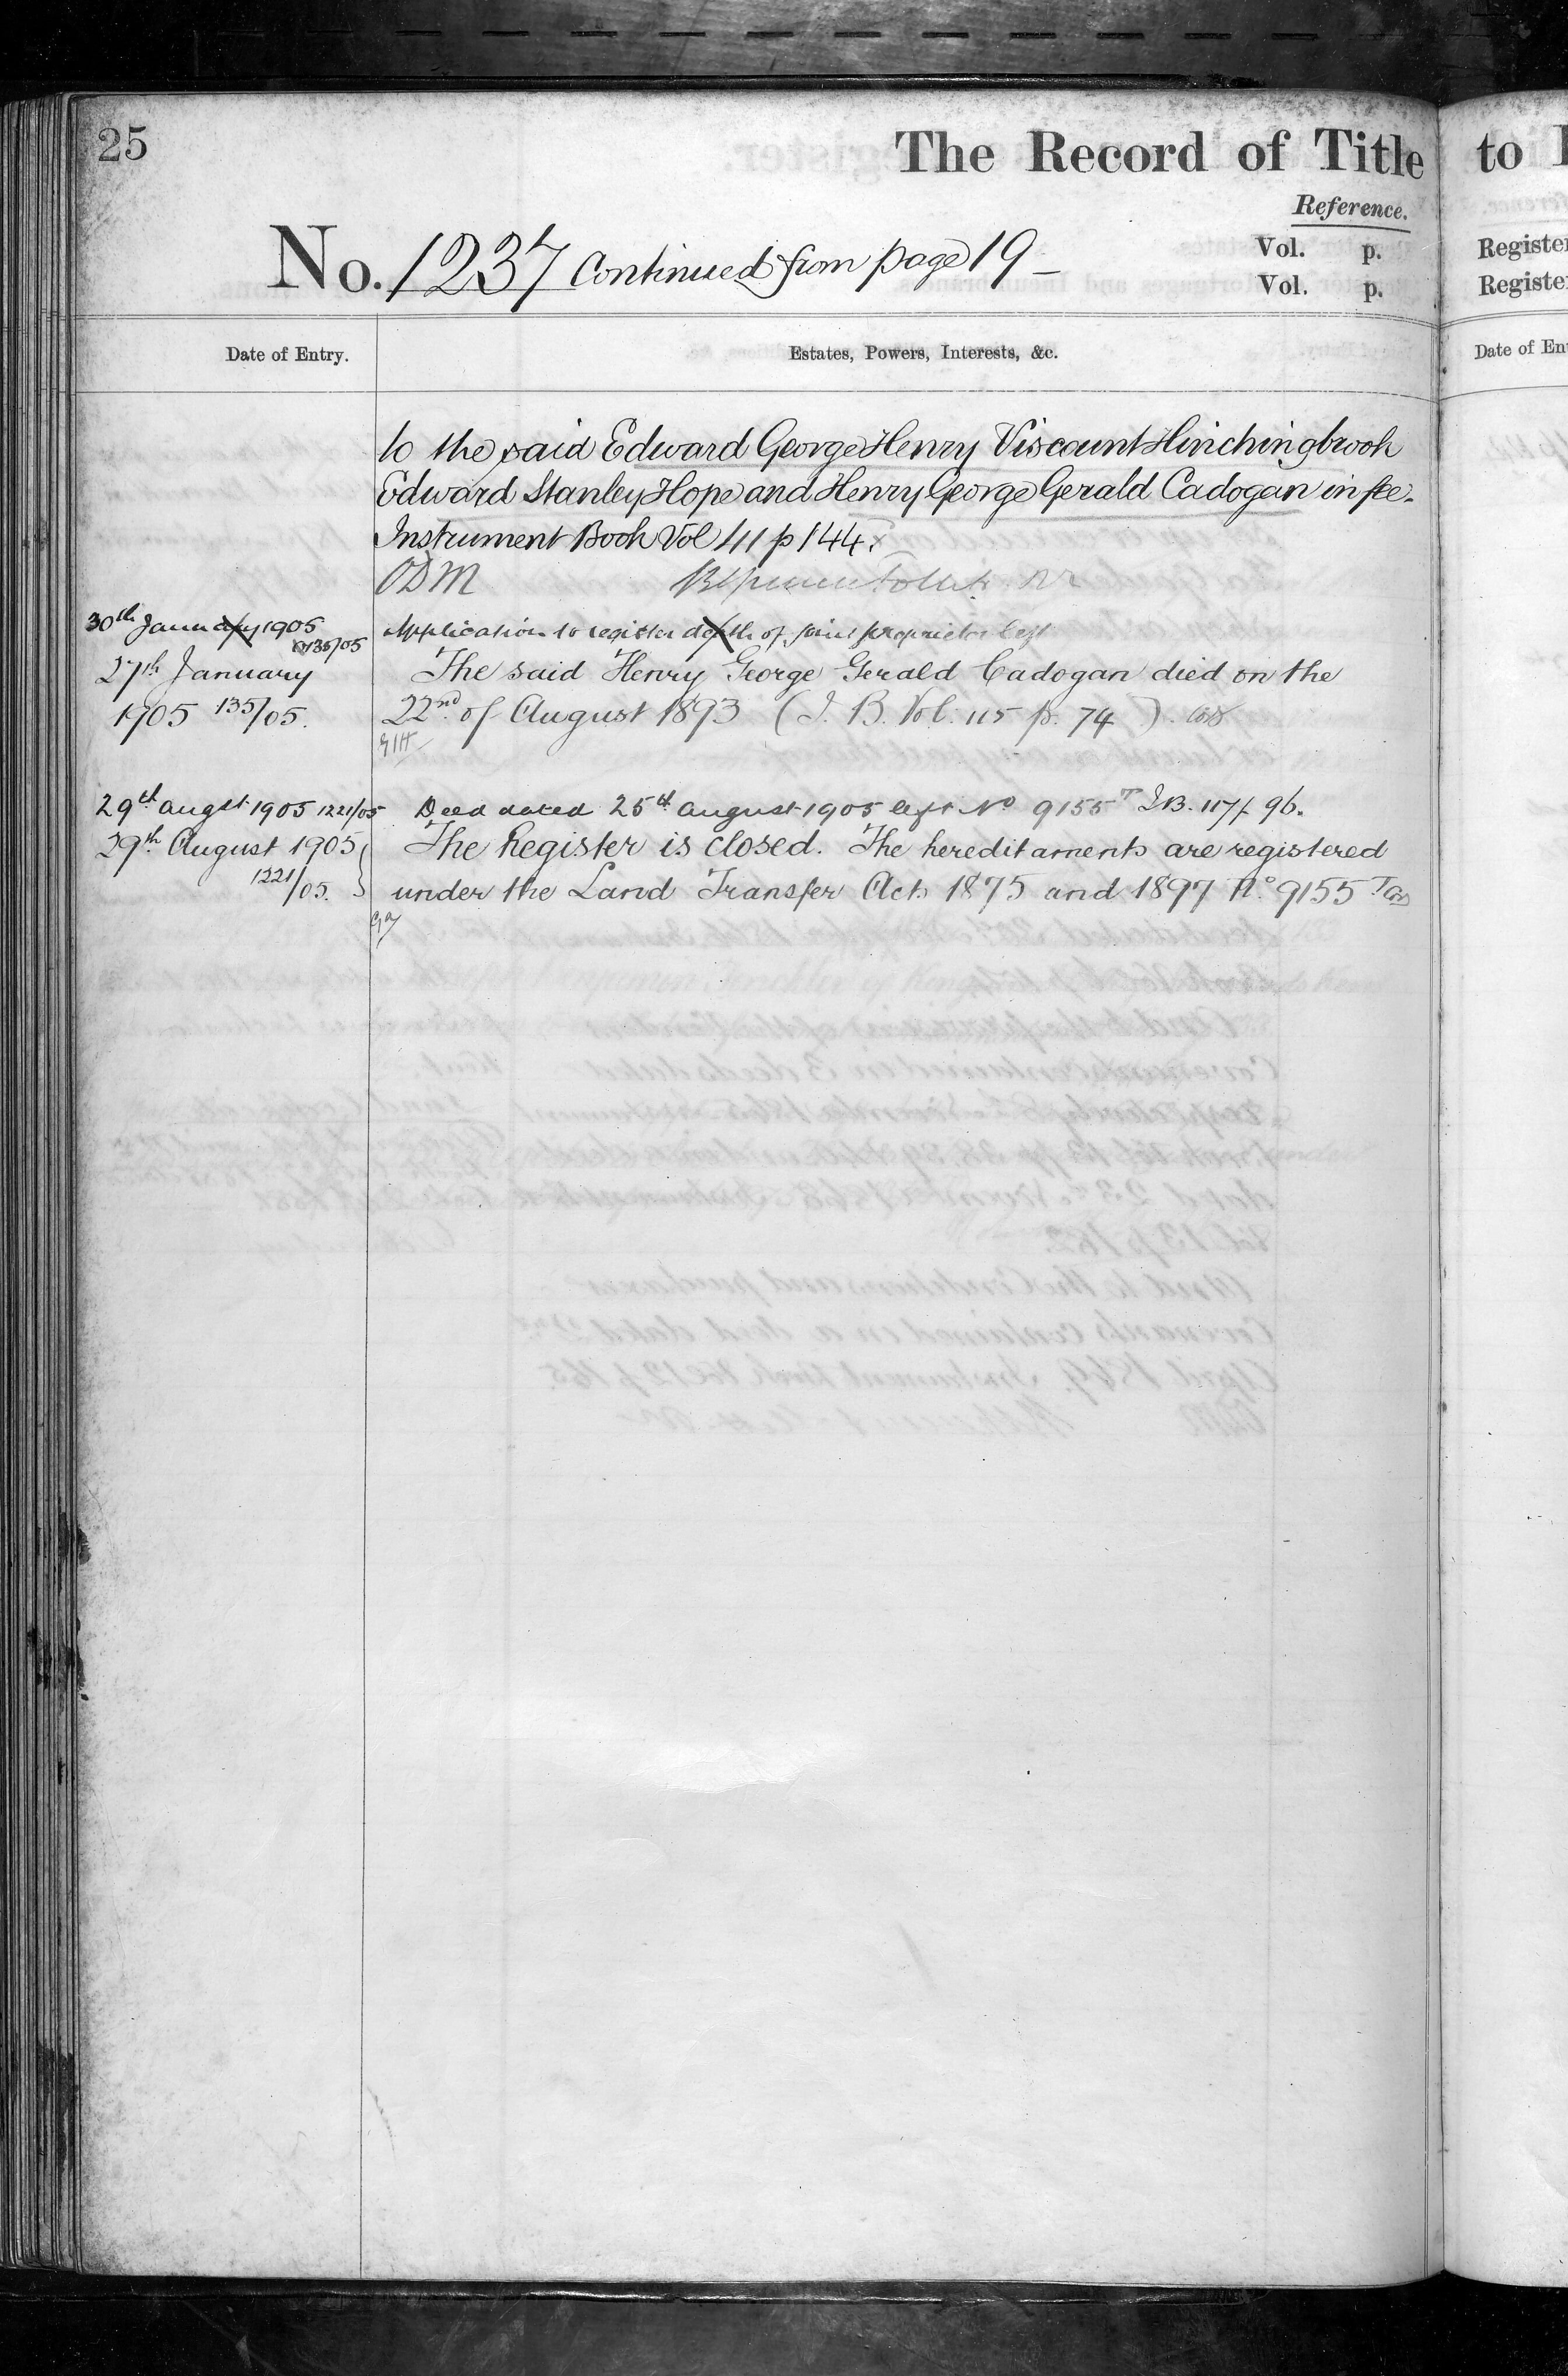 25
The Record of Title
to
Reference.
No. 1237 Continued from page 19 –
Vol. p.
Vol. p.
Date of Entry.
Estates, Powers, Interests, &c.
to the said Edward George Henry Viscount Hinchingbrook
Edward Stanley Hope and Henry George Gerald Cadogan in fee.
Instrument Book Vol 41 p 144.
ODM
30th January 1905
135/05
Application to register death of joint proprietor
27th January
1905 135/05.
The said Henry George Gerald Cadogan died on the
22nd of August 1893 (I. B. Vol. 115 p. 74)
29th augst 1905 1221/05
Deed dated 25th august 1905 left No 9155 T I.B. 117/ 96.
29th August 1905
1221/05.
The Register is closed. The hereditaments are registered
under the Land Transfer Acts 1875 and 1897 No. 9155 T